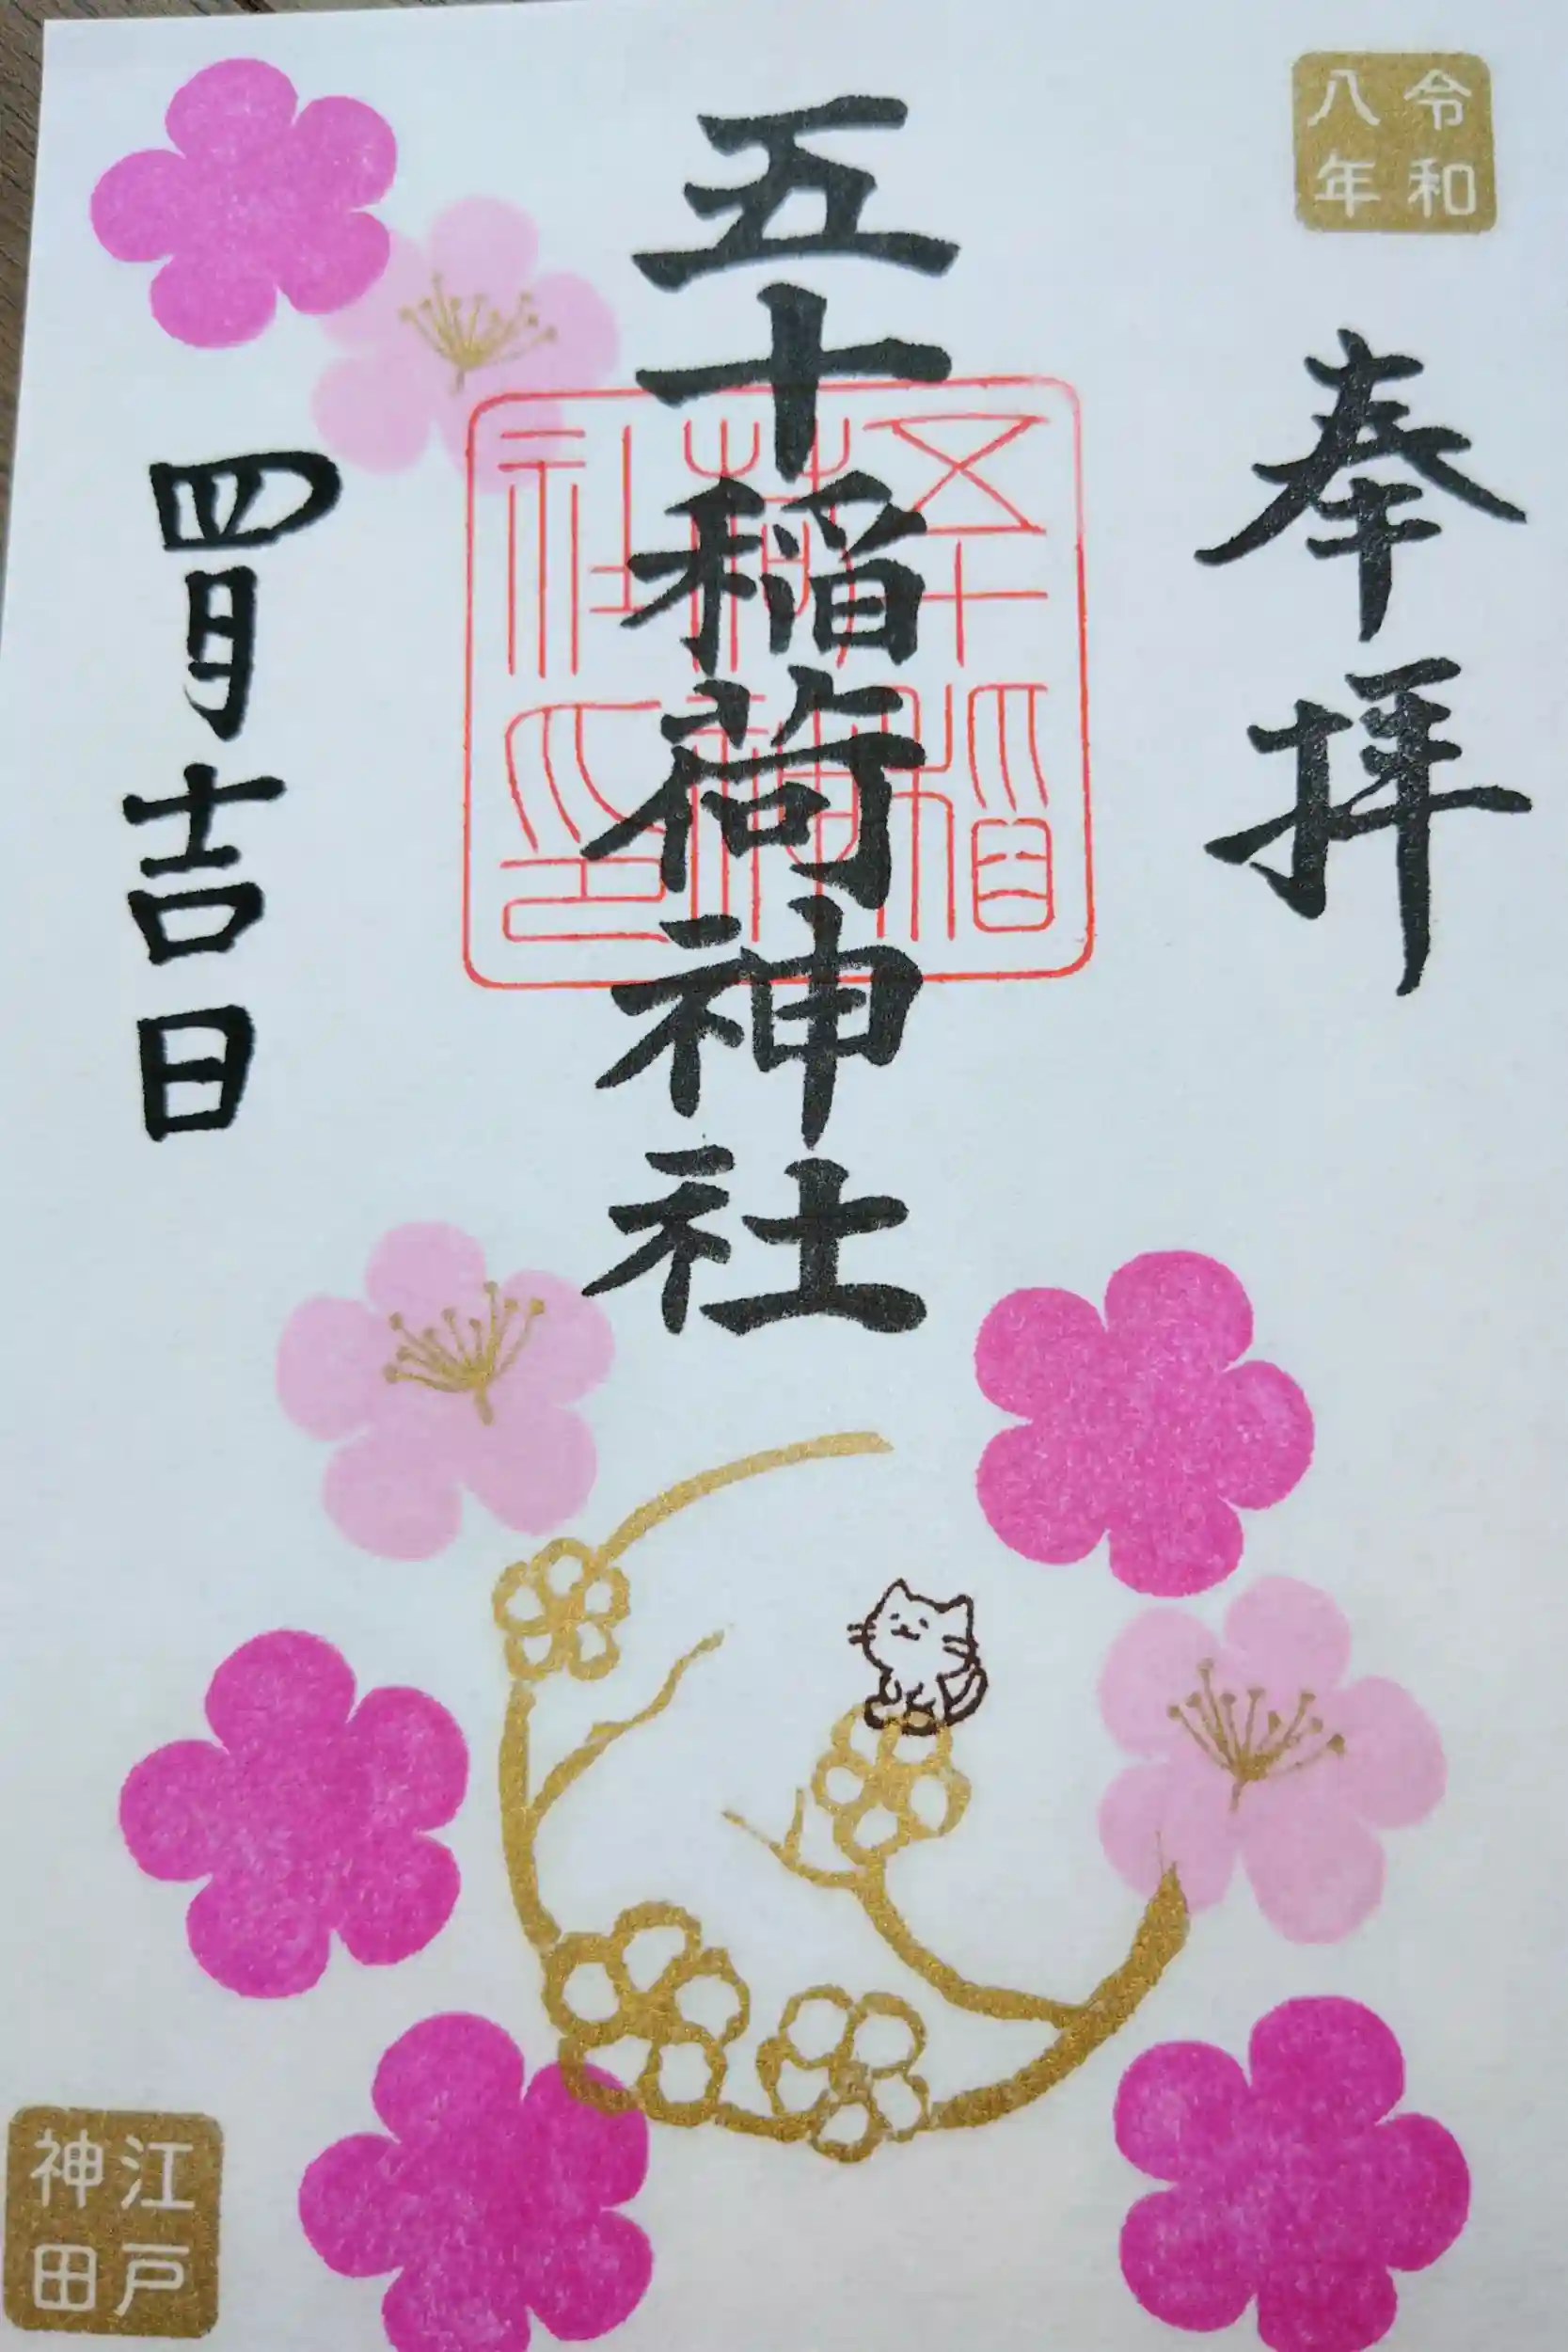 令和
八年
奉拝
五十稲荷神社
五十稲荷神社印
四月吉日
江戸
神田